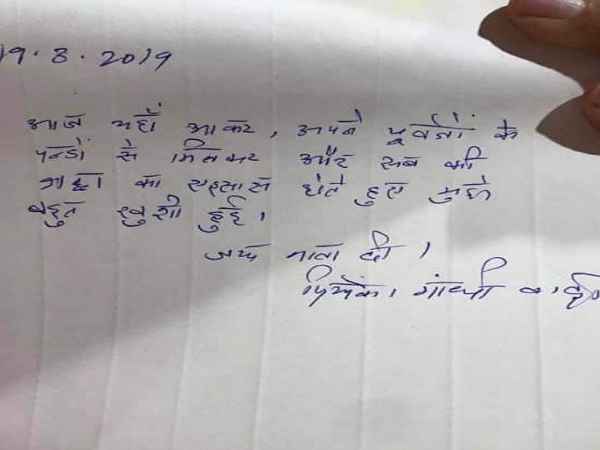 19.8.2019
आज यहाँ आकर, अपने पूर्वजों के
पन्डों से मिलकर और सब की
श्रद्धा का एहसास होते हुए मुझे
बहुत खुशी हुई।
जय माता दी।
प्रियंका गांधी